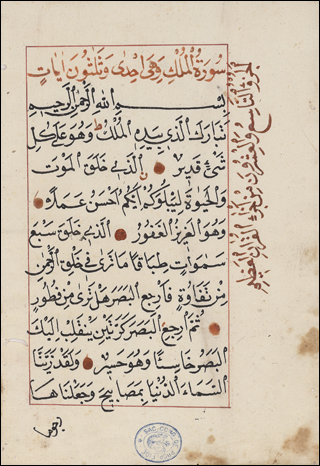 سورة الملك وهي احدى وثلثون ايات
بسم الله الرحمن الرحيم
تبارك الذي بيده الملك وهو على كل
شئ قدير الذي خلق الموت
والحيوة ليبلوكم ايكم احسن عملا
وهو العزيز الغفور الذي خلق سبع
سموات طباقا ما ترى في خلق الرحمن
من تفاوت فارجع البصر هل ترى من فطور
ثم ارجع البصر كرتين ينقلب اليك
البصر خاسئا وهو حسير ولقد زينا
السماء الدنيا بمصابيح وجعلناها
الجزء التاسع والعشرون من اجزاء القرآن العظيم